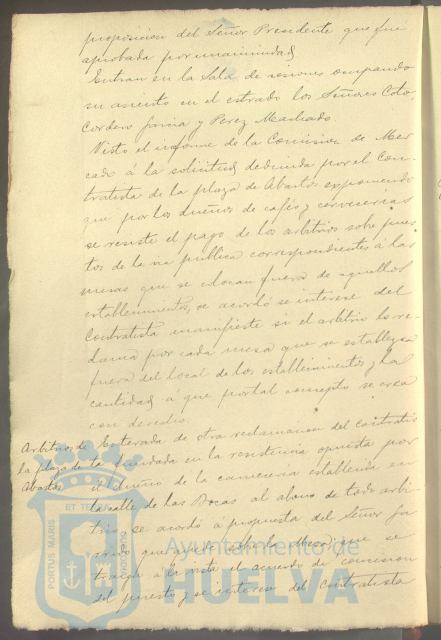 proposicion del Señor Presidente que fue
aprobada por unanimidad,
Entran en la Sala de sesiones ocupando
su asiento en el estrado los Señores Coto,
Cordero Garcia y Perez Machado.
Visto el informe de la Comision de Mer
cado á la solicitud deducida por el Con
tratista de la plaza de Abastos exponiendo
que por los dueños de cafés y cervecerias
se resiste el pago de los arbitrios sobre pues
tos de la via publica correspondientes á las
mesas que se colocan fuera de aquellos
establecimientos, se acordó se interese del
Contratista manifieste si el arbitrio lo re-
clama por cada mesa que se establezca
fuera del local de los establecimientos y la
cantidad á que por tal concepto se crea
con derecho.
Arbitrios de
la plaza de
Abastos
Enterada de otra reclamacion del contratis
ta fundada en la resistencia opuesta por
el dueño de la carniceria establecida en
la calle de las Bocas al abono de todo arbi-
trio, se acordó á propuesta del Señor
que sobre la Mesa que se
traiga á la vista el acuerdo de concesion
del puesto y se interese del Contratista
PORTUS MARIS
ET TERRAE
CUSTODIA
Ayuntamiento de
HUELVA